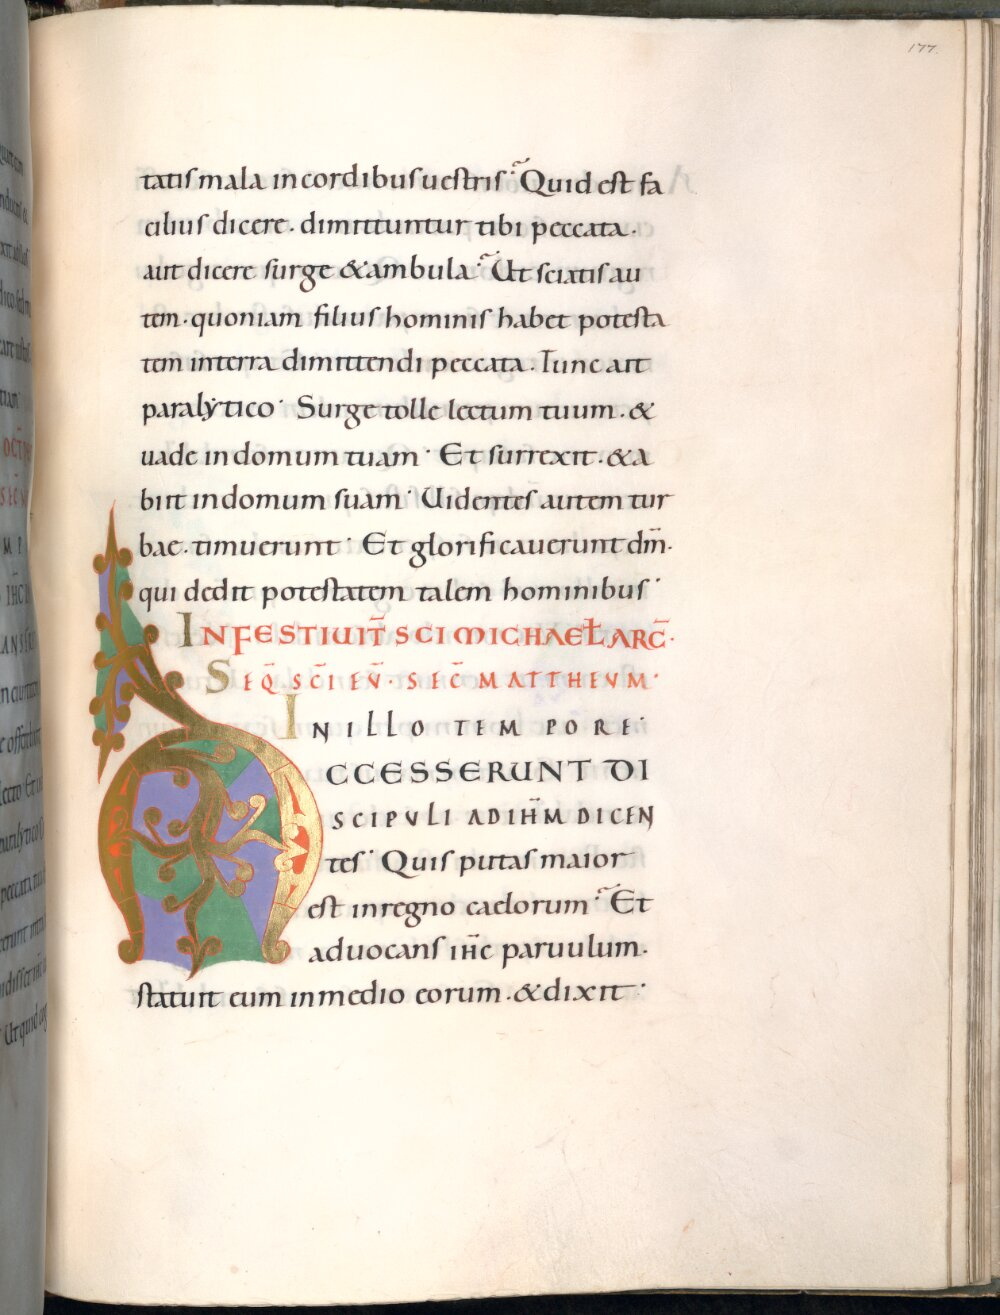 177
tatis mala in cordibus uestris. Quid est fa
cilius dicere. dimittuntur tibi peccata.
aut dicere surge & ambula. Ut sciatis au
tem. quoniam filius hominis habet potesta
tem in terra dimittendi peccata. Tunc ait
paralytico. Surge tolle lectum tuum. &
uade in domum tuam. Et surrexit. & a
biit in domum suam. Uidentes autem tur
bae. timuerunt. Et glorificauerunt dm̄.
qui dedit potestatem talem hominibus.
IN FESTIUIT̄ SCI MICHAEL ARC̄.
SEQ̄ SC̄I EṼ. SEC̄ MATTHEVM.
IN ILLO TEMPORE.
ACCESSERUNT DI
SCIPVLI AD IHM̄ DICEN
tes. Quis putas maior
est in regno caelorum. Et
aduocans ihc̄ paruulum.
statuit eum in medio eorum. & dixit.